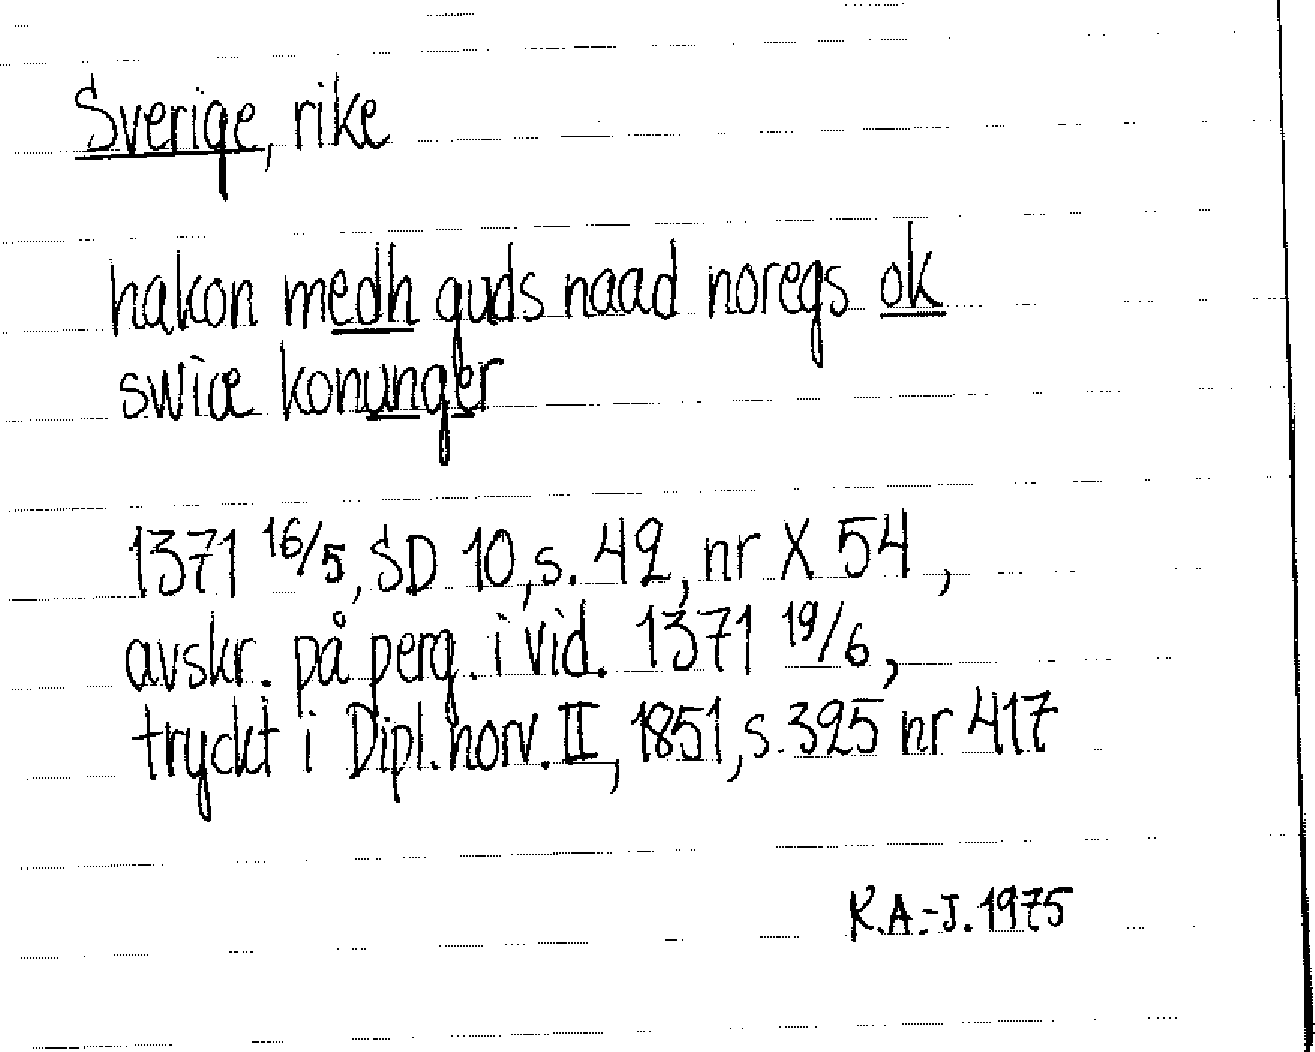 Sverige, rike
hakon medh guds naad noregs ok
swiæ konunger
1371 16/5, SD 10, s. 42, nr X 54,
avskr. på perg. i vid. 1371 19/6,
tryckt i Dipl. norv. II, 1851, s. 325 nr 417
K.A.-J. 1975